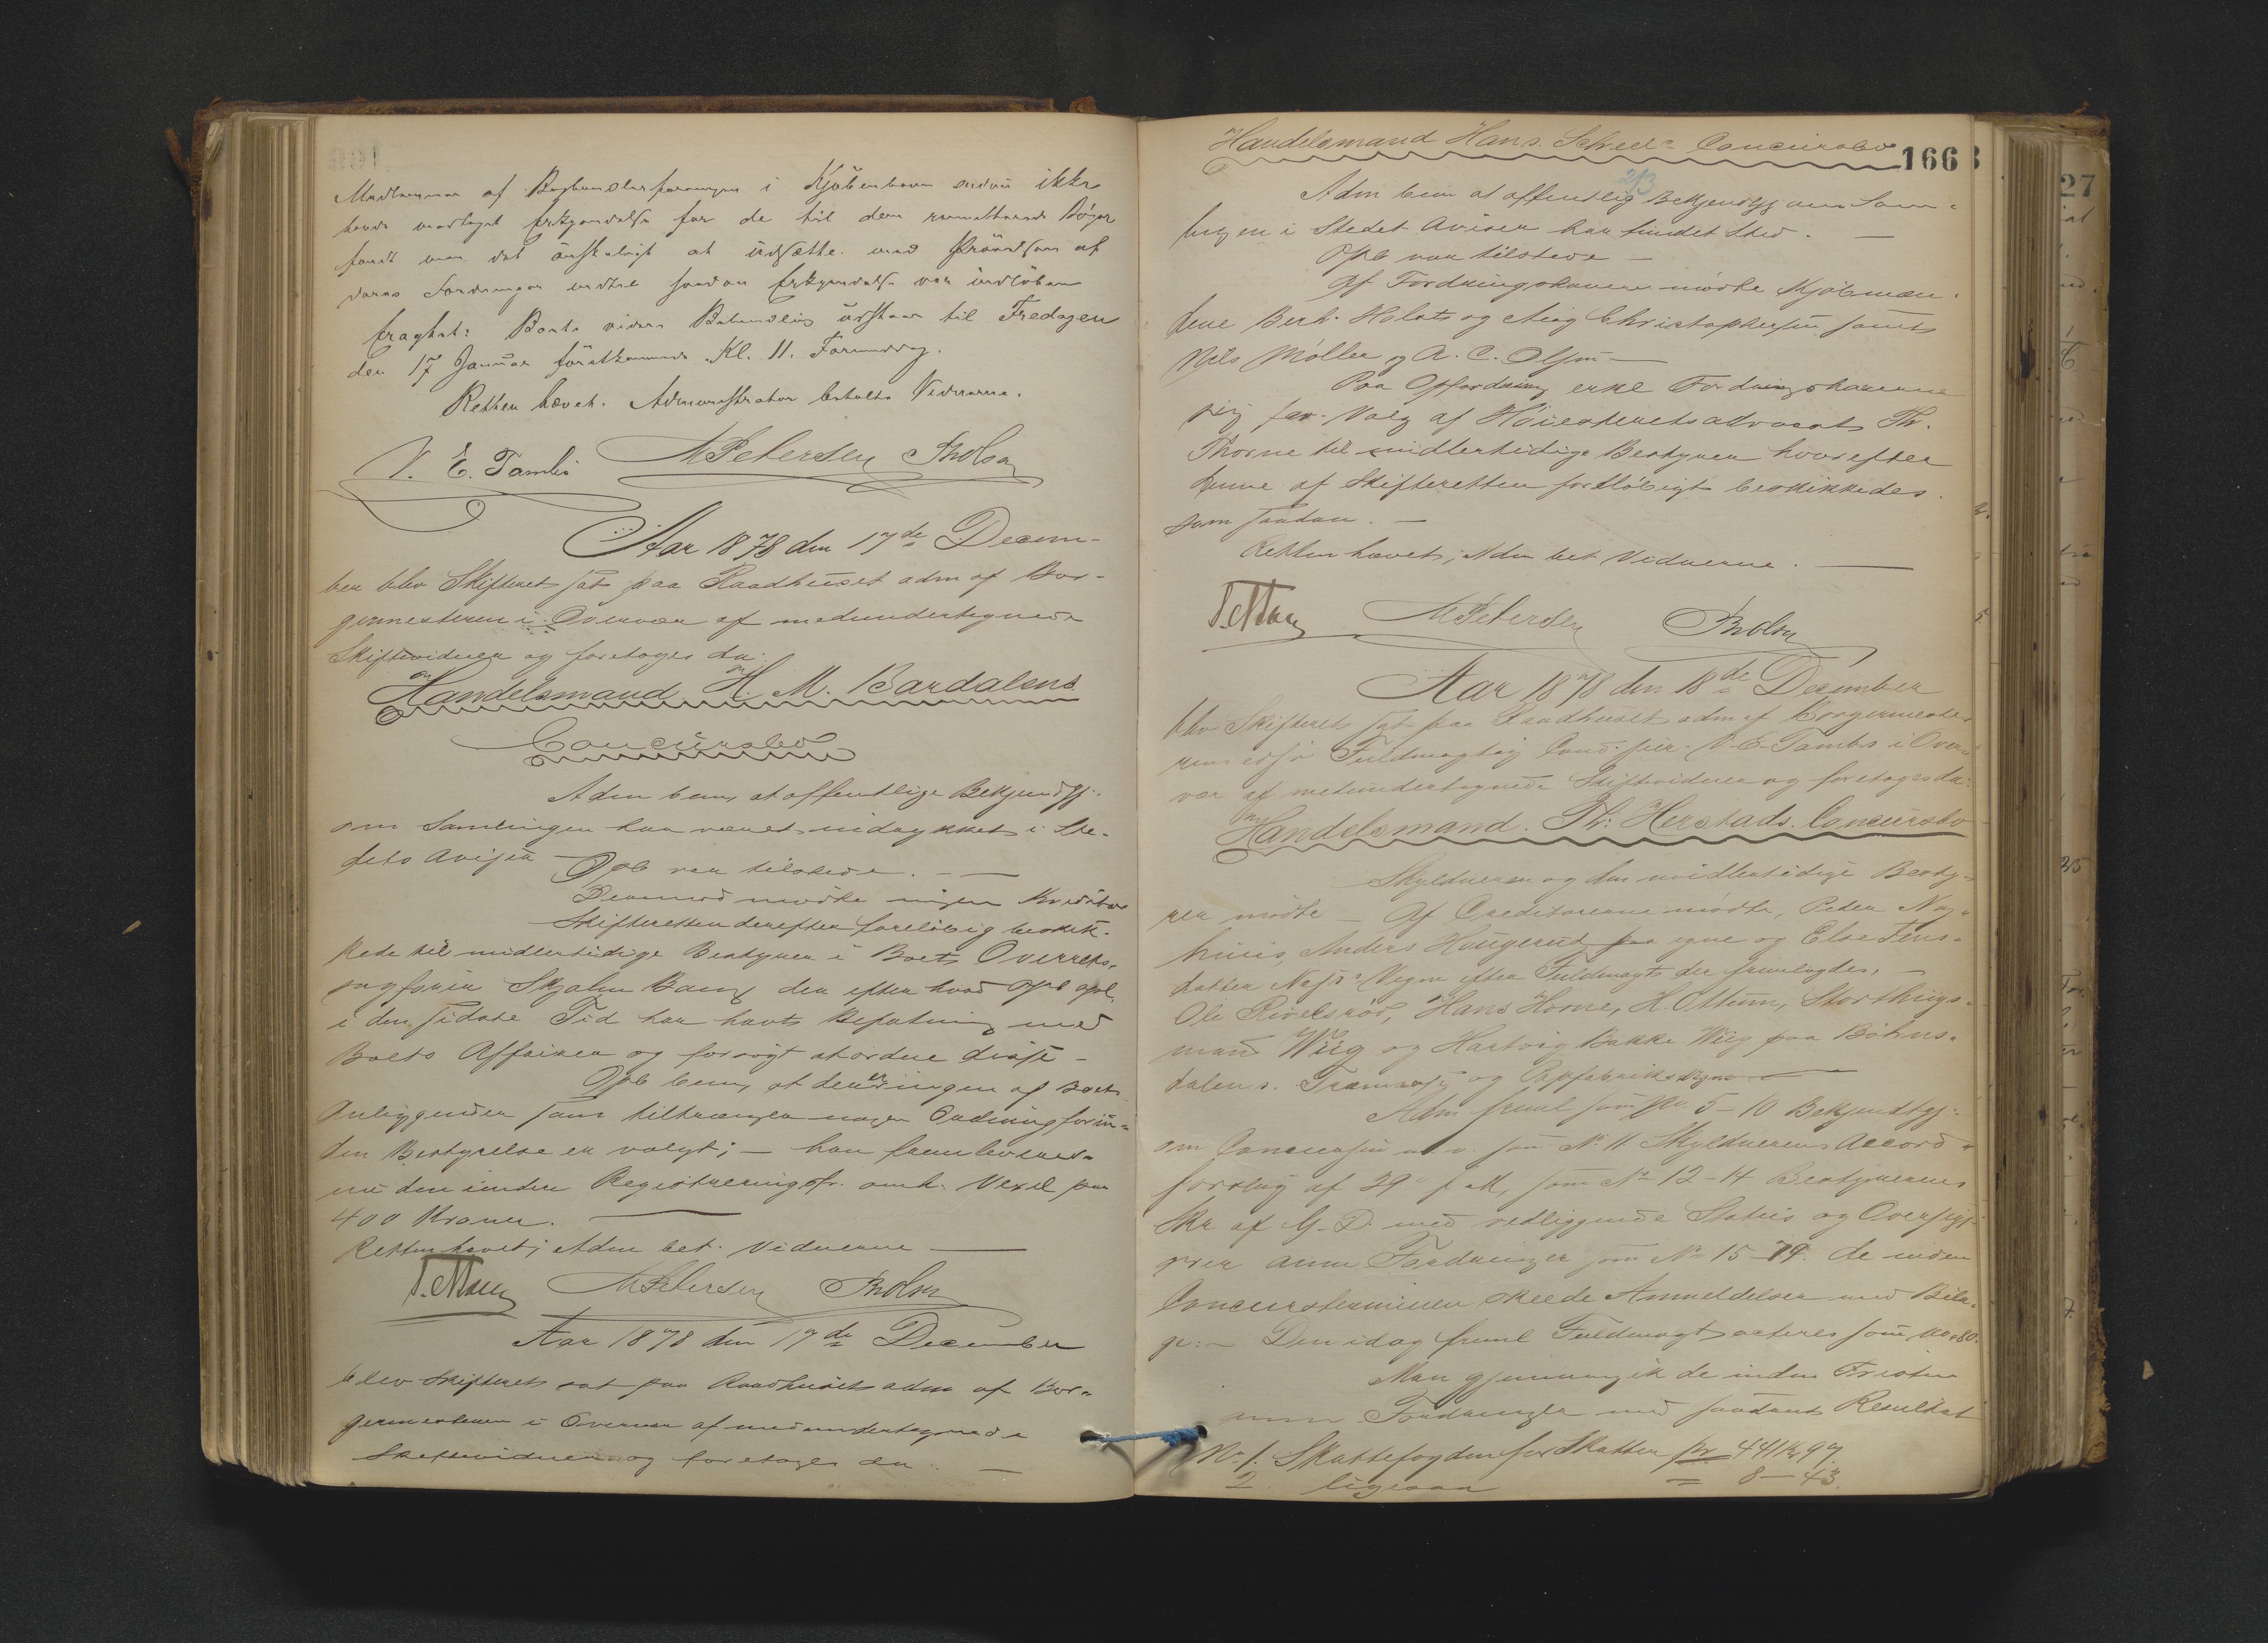 Medlemmer af Boghandlerforeningen i Kjöbenhavn endnu ikke
havde modtaget Erkjendelse for de til dem remitterede Bøger
fandt man det ønskeligt at udsætte med Prøvelsen af
deres Fordringer indtil saadan Erkjendelse var indløben
fragtet: Boets videre Behandling udstaar til Fredagen
den 17 Januar førstkommende Kl. 11. Formiddag.
Retten hævet. Administrator betalte Vidnerne.
V. E. Tambs M Petersen
Aar 1878 den 17de Decem-
ber blev Skifteret sat paa Raadhuset adm af Bor-
germesteren i Overvær af medundertegnede
Skiftevidner og foretoges da:
Handelsmand H. M. Bardalens
Concursbo
Adm bem, at offentlige Bekjendtgj.
om Samlingen har været indrykket i Ste-
dets Aviser
Opb var tilstede. —
Derimod mødte ingen Kreditor
Skifteretten derefter foreløbig beskik-
kede til midlertidige Bestyrer i Boets Overrets-
sagfører Skjalm Bang der efter hvad Opb opl.
i den sidste Tid har havt Befatning med
Boets Affairer og forsøgt at ordne disse —
Opb bem, at der er ingen af Boets
Anliggender som tiltrænger nogen Ordning forin-
den Bestyrelse er valgt; — han fremleverede
nu den under Registreringsfr. omh. Vexel paa
400 Kroner. —
Retten hævet; Adm bet. Vidnerne —
M Petersen
Aar 1878 den 17de December
blev Skifteret sat paa Raadhuset adm af Bor-
germesteren i Overvær af medundertegnede
Skiftevidner og foretoges da: —
Handelsmand Hans Concursbo
166
2/3
Adm bem at offentlig Bekjendtgj om Sam-
lingen i Stedet Aviser har fundet Sted. —
Opb var tilstede —
Af Fordringshavere mødte Kjøbmæn-
dene Berh. Holst og Aug Christophersen samt
Nils Møller og A. C. Olsen —
Paa Opfordring erkl Fordringshaverne
sig for Valg af Høiesteretsadvocat Th.
Thorne til midlertidige Bestyrer hvorefter
denne af Skifteretten forløbigt beskikkedes
som saadan. —
Retten hævet; Adm bet Vidnerne. —
M Petersen
Aar 1878 den 18de December
blev Skifteret sat paa Raadhuset adm af Borgermeste-
rens edsv Fuldmægtig Cand. jur. V. E. Tambs i Over-
vær af medundertegnede Skiftevidner og foretoges da:
Handelsmand Th: Herstads Concursbo
Skyldneren og den midlertidige Besty-
rer mødte — Af Creditorerne mødte, Peder
Anders Haugerud paa egne og Else Jens-
datter Vegne efter Fuldmagt der fremlagdes, —
Ole Hans Horne, H. Ottum, Storthings-
mand Wiig og Hartvig Bakke Wiig paa Bøhns-
dalens Træmasse og Papfabriks Vegne —
Adm freml som No 5–10 Bekjendtgj.
om Concursen som No 11 Skyldnerens Accord-
forslag af 29 f M, som No 12–14 Bestyrerens
Skr af G. D. med vedliggende Status og Oversigt
over anm Fordringer som No 15–79 de inden
Concursterminen skeede Anmeldelser med Bila-
ge: — Den idag freml Fuldmagt acteres som No 80.
Man gjennemgik de inden Fristen
anm Fordringer med saadant Resultat
No 1. Skattefogden for Skatter pr 441 Kr 97
2. ligesaa = 8 — 43.